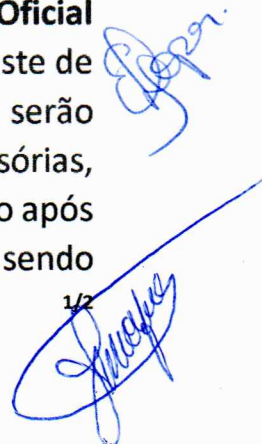 Oficial
ste de
serão
sórias,
o após
sendo
1/2